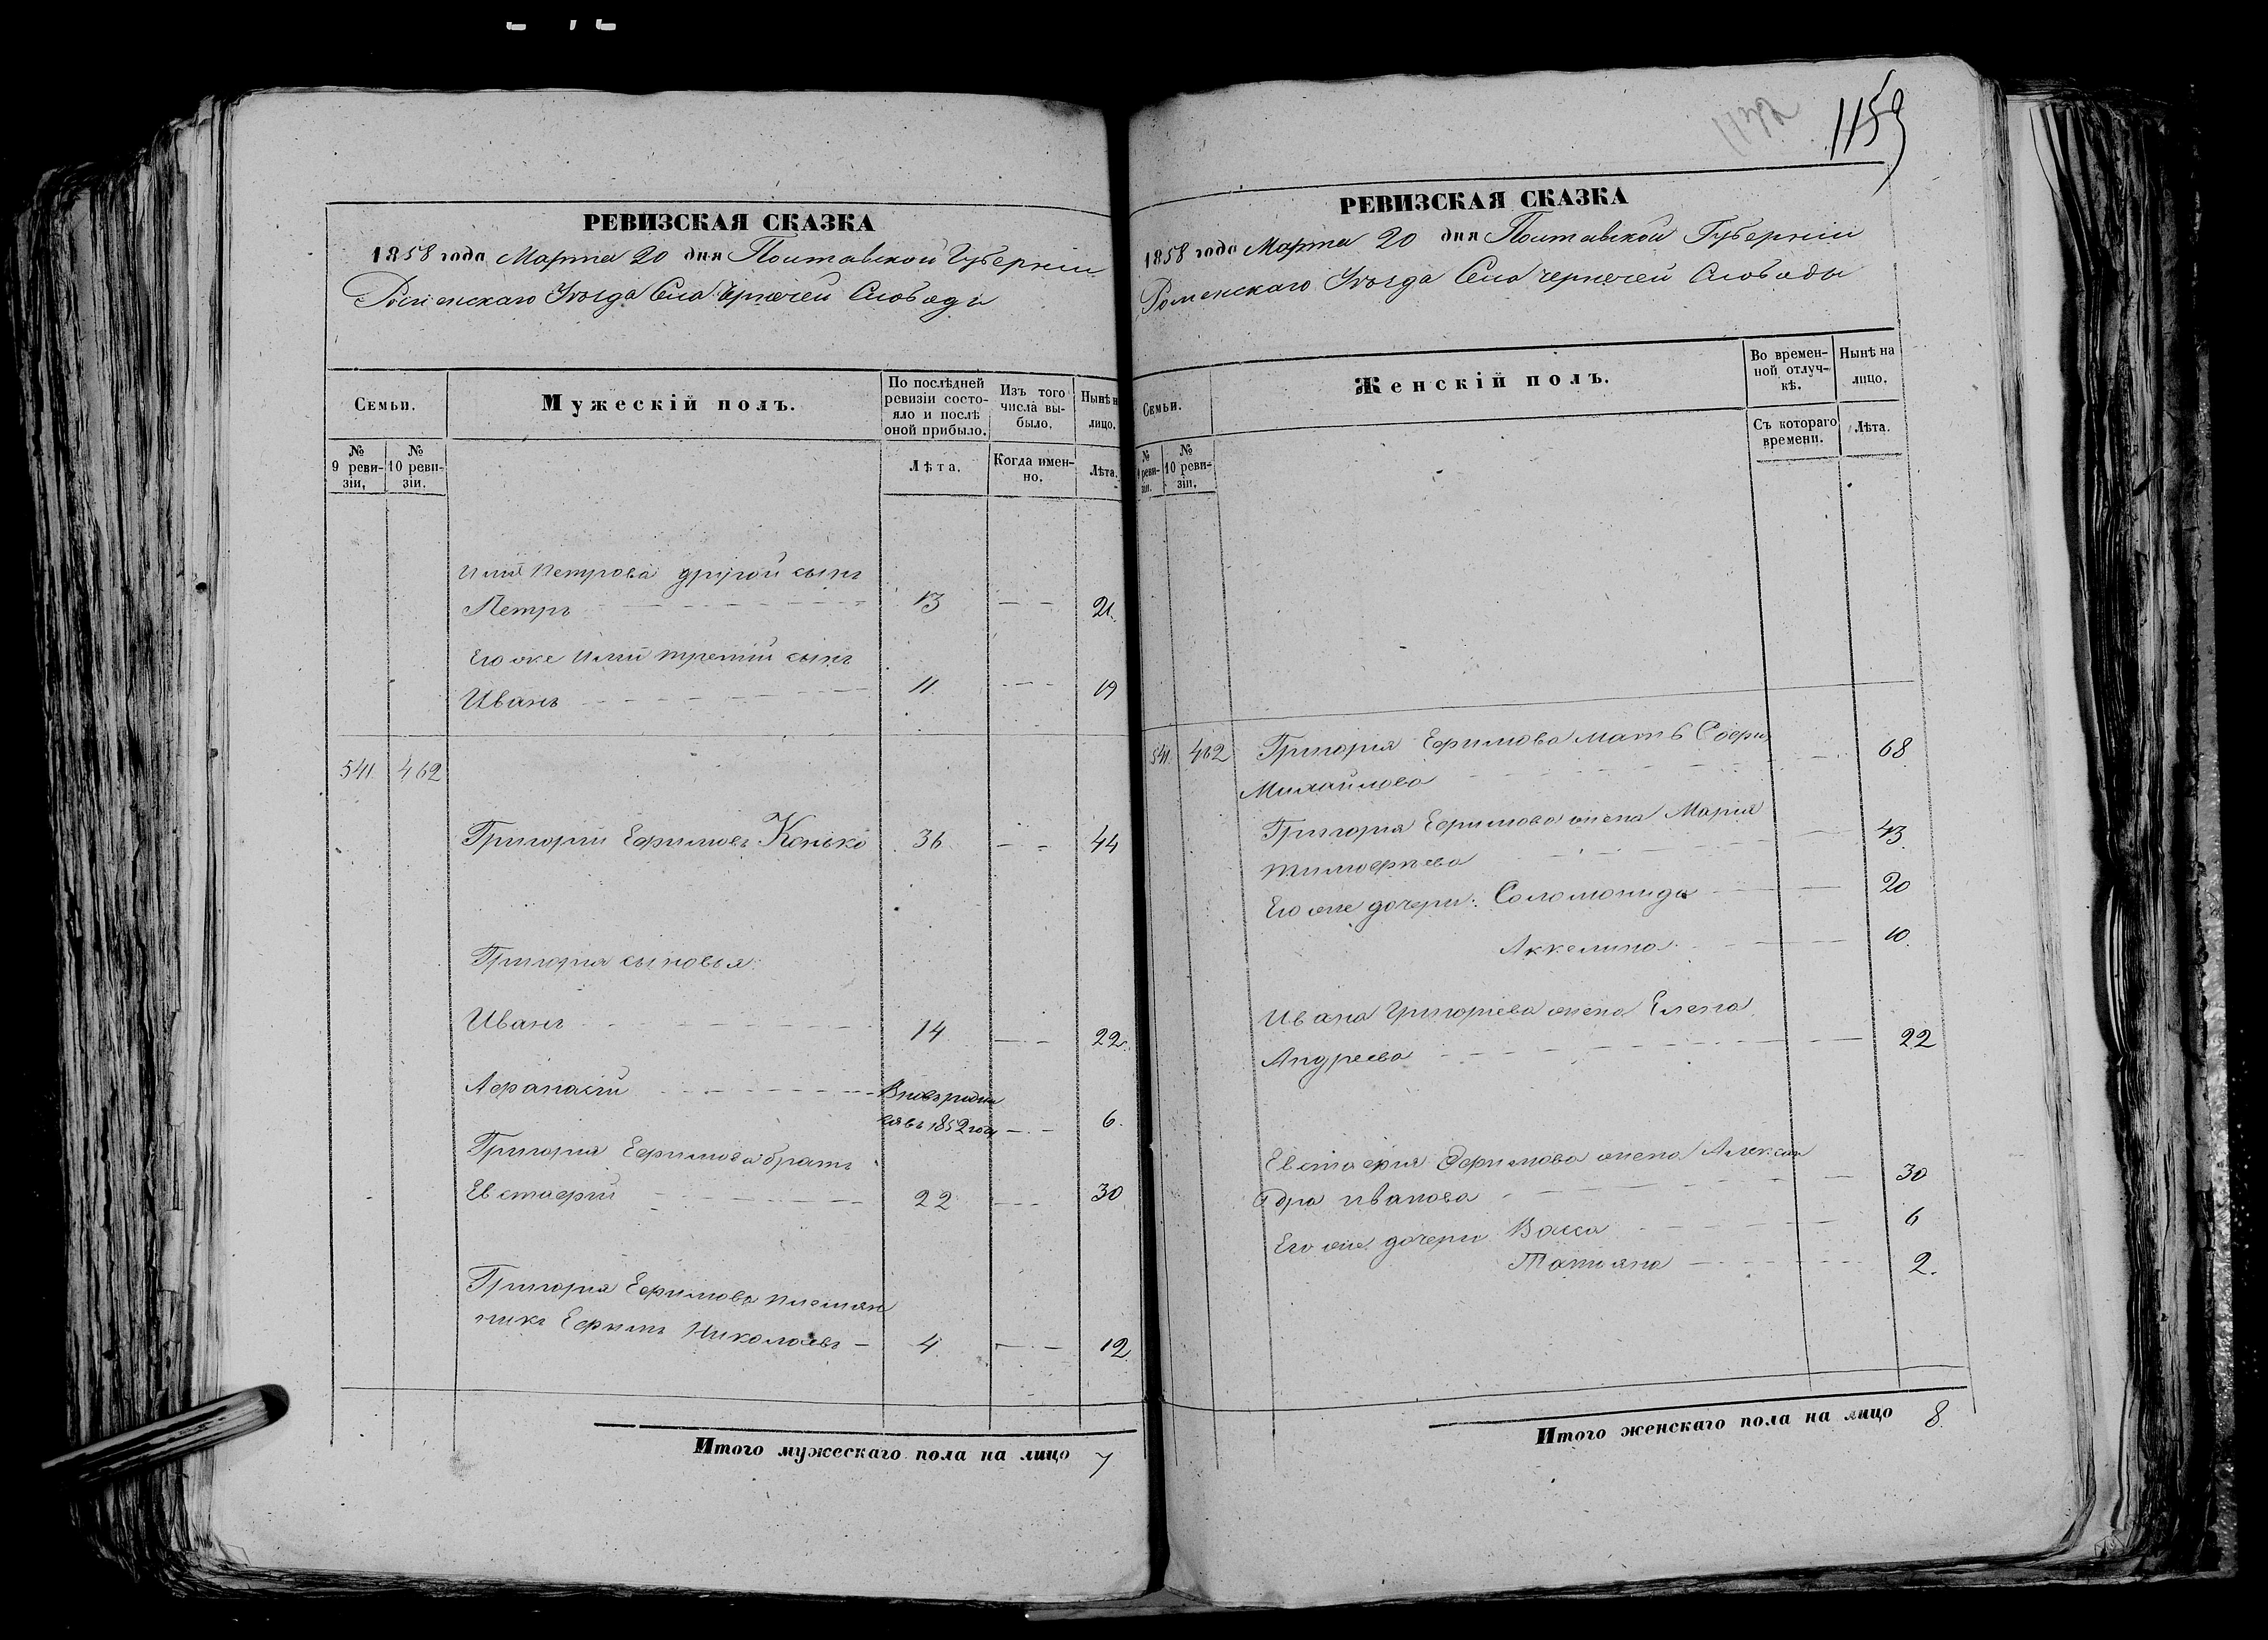 1132
1159
РЕВИЗСКАЯ СКАЗКА
1858 года Марта 20 дня Полтавской Губерніи
Роменскаго Уѣзда Села Чернечей Слободы
Семьи.
Мужескій полъ.
По послѣдней
ревизіи состо-
яло и послѣ
оной прибыло.
Изъ того
числа вы-
было.
Нынѣ н
лицо.
№
9 реви-
зіи.
№
10 реви-
зіи.
Лѣта.
Когда имен-
но.
Лѣта.
Ильи Петрова другой сынъ
Петръ 13 21.
Его же Ильи третій сынъ
Иванъ 11 19
541. 462
Григорій Ефимовъ Конько 36 44
Григорія сыновья:
Иванъ 14 22.
Афанасій Вновь родил
ся въ 1852 году 6.
Григорія Ефимова братъ
Евстафій 22 30
Григорія Ефимова племян
никъ Ефимъ Николаевъ 4 12
Итого мужескаго пола на лицо 7
РЕВИЗСКАЯ СКАЗКА
1858 года Марта 20 дня Полтавской Губерніи
Роменскаго Уѣзда Села Чернечей Слободы
Семьи.
Женскій полъ.
Во времен-
ной отлуч-
кѣ.
Нынѣ на
лицо.
№
9 реви-
зіи.
№
10 реви-
зіи.
Съ котораго
времени.
Лѣта.
541. 462 Григорія Ефимова мать Софія
Михайлова 68
Григорія Ефимова жена Марія
Тимофѣева 43.
Его же дочери: Соломонида 20
Аккелина 10.
Ивана Григорьева жена Елена
Андреева 22
Евстафія Ефимова жена Алексан
дра Иванова 30
Его же дочери Васса 6
Татіяна 2.
Итого женскаго пола на лицо 8.